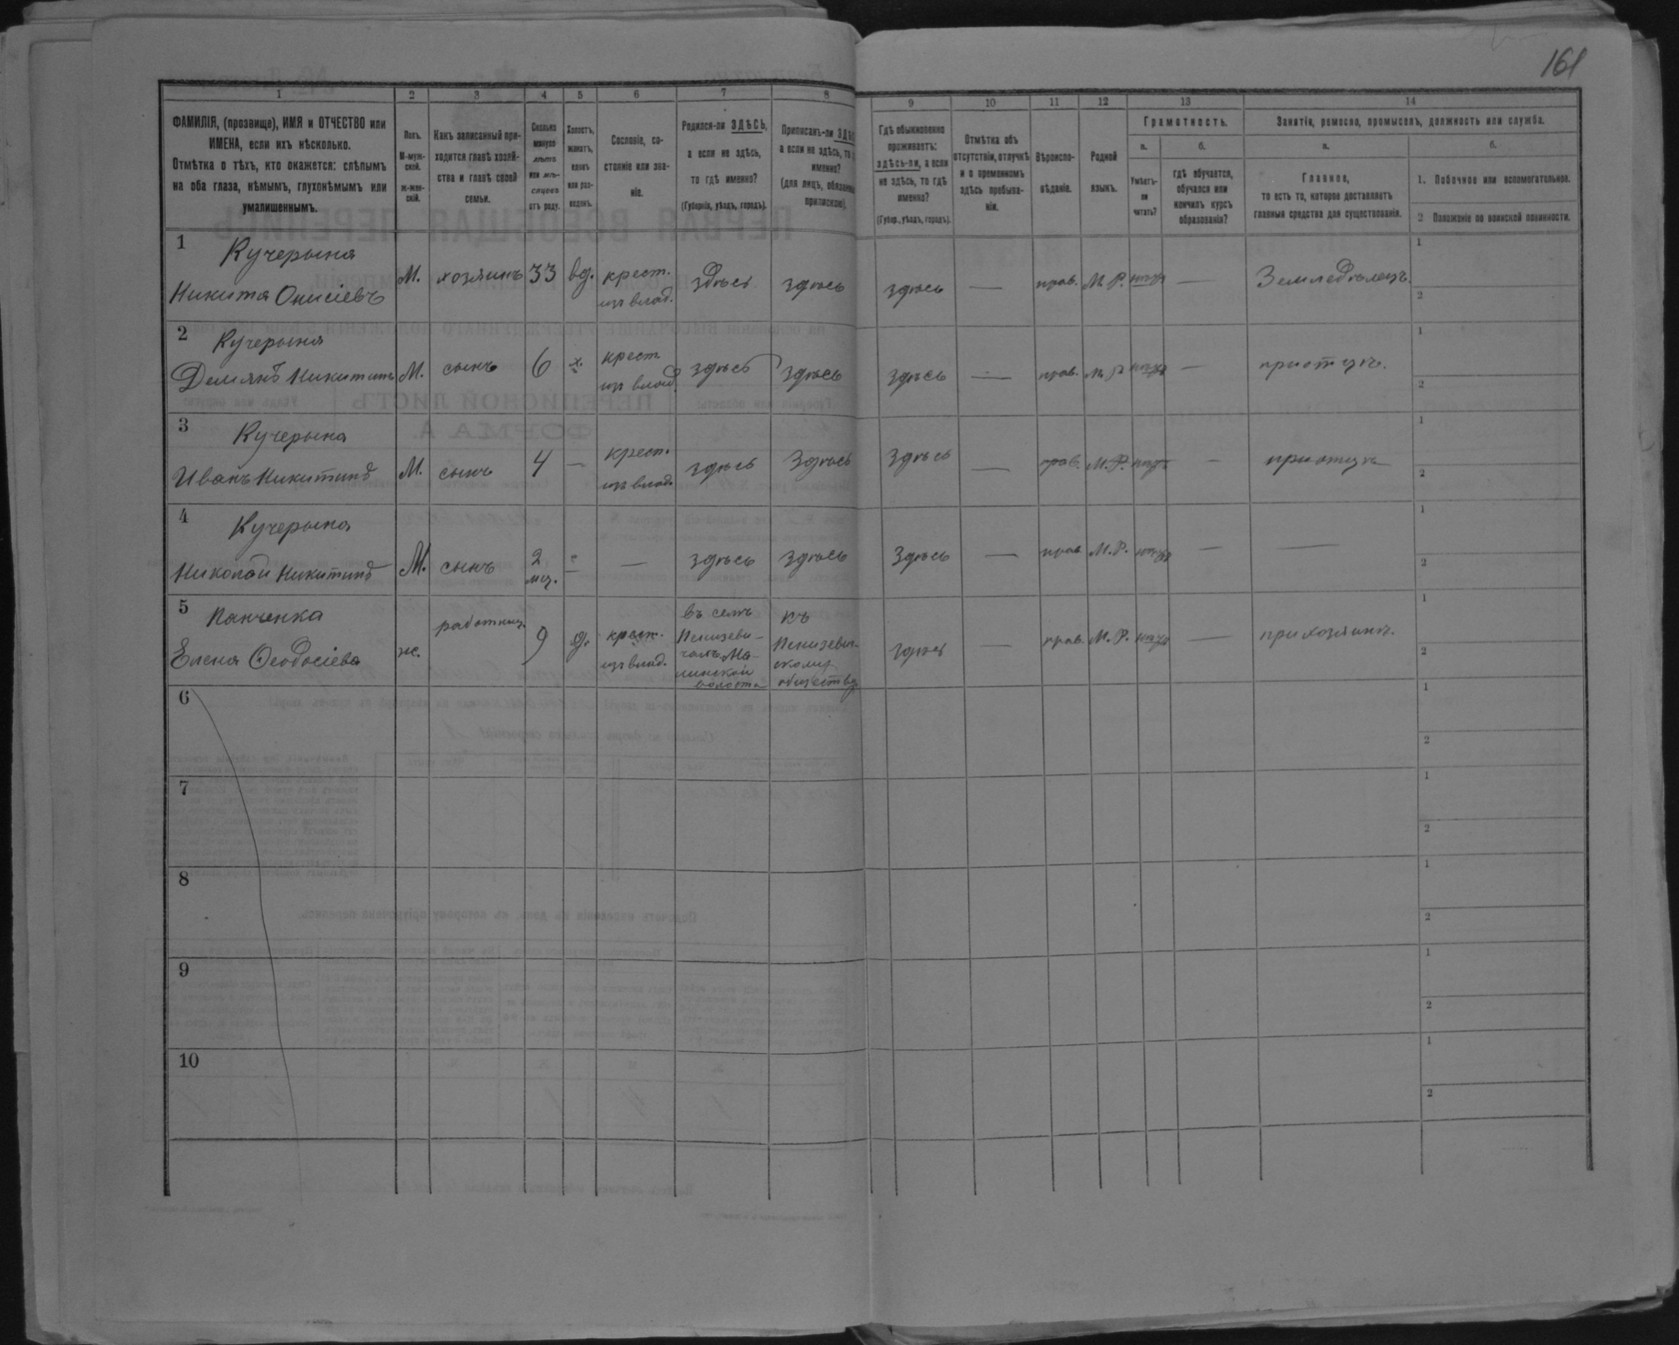 161
1 2 3 4 5 6 7 8 9 10 11 12 13 14
ФАМИЛІЯ, (прозвище), ИМЯ и ОТЧЕСТВО или
ИМЕНА, если ихъ нѣсколько.
Отмѣтка о тѣхъ, кто окажется: слѣпымъ
на оба глаза, нѣмымъ, глухонѣмымъ или
умалишеннымъ.
Полъ.
М-муж-
ской.
ж-жен-
скій.
Какъ записанный при-
ходится главѣ хозяй-
ства и главѣ своей
семьи.
Сколько
минуло
лѣтъ
или мѣ-
сяцевъ
отъ роду.
Холостъ,
женатъ,
вдовъ
или раз-
веденъ.
Сословіе, со-
стояніе или зва-
ніе.
Родился-ли ЗДѢСЬ,
а если не здѣсь,
то гдѣ именно?
(Губернія, уѣздъ, городъ).
Приписанъ-ли ЗДѢС
а если не здѣсь, то
именно?
(для лицъ, обязан
припискою).
Гдѣ обыкновенно
проживаетъ:
здѣсь-ли, а если
не здѣсь, то гдѣ
именно?
(Губер., уѣздъ, городъ).
Отмѣтка объ
отсутствіи, отлучкѣ
и о временномъ
здѣсь пребыва-
ніи.
Вѣроиспо-
вѣданіе.
Родной
языкъ.
Грамотность.
а.
Умѣетъ-
ли
читать?
б.
гдѣ обучается,
обучался или
кончилъ курсъ
образованія?
Занятіе, ремесло, промыселъ, должность или служба.
а.
Главное,
то есть то, которое доставляетъ
главныя средства для существованія.
б.
1. Побочное или вспомогательное.
2 Положеніе по воинской повинности.
1 Кучерына
Никита Онисіевъ М. хозяинъ 33 вд. крест. изъ влад. здѣсь здѣсь здѣсь — прав. М. Р. нѣтъ — Земледѣлецъ 1 2
2 Кучерына
Демянъ Никитинъ М. сынъ 6 х. крест. изъ влад. здѣсь здѣсь здѣсь — прав. М. Р. нѣтъ — при отцѣ 1 2
3 Кучерына
Иванъ Никитинъ М. сынъ 4 — крест. изъ влад. здѣсь здѣсь здѣсь — прав. М. Р. нѣтъ — при отцѣ 1 2
4 Кучерына
Николай Никитинъ М. сынъ 2 мѣ. — здѣсь здѣсь здѣсь — прав. М. Р. нѣтъ — — 1 2
5 Панченка
Елена Ѳеодосіева ж. работниц. 9 крест. изъ влад.
въ селѣ
Пенизеви-
чахъ Ма-
линской
волости
къ
Пенизевич-
обществу
здѣсь — прав. М. Р. нѣтъ — при хозяинѣ 1 2
6 1 2
7 1 2
8 1 2
9 1 2
10 1 2